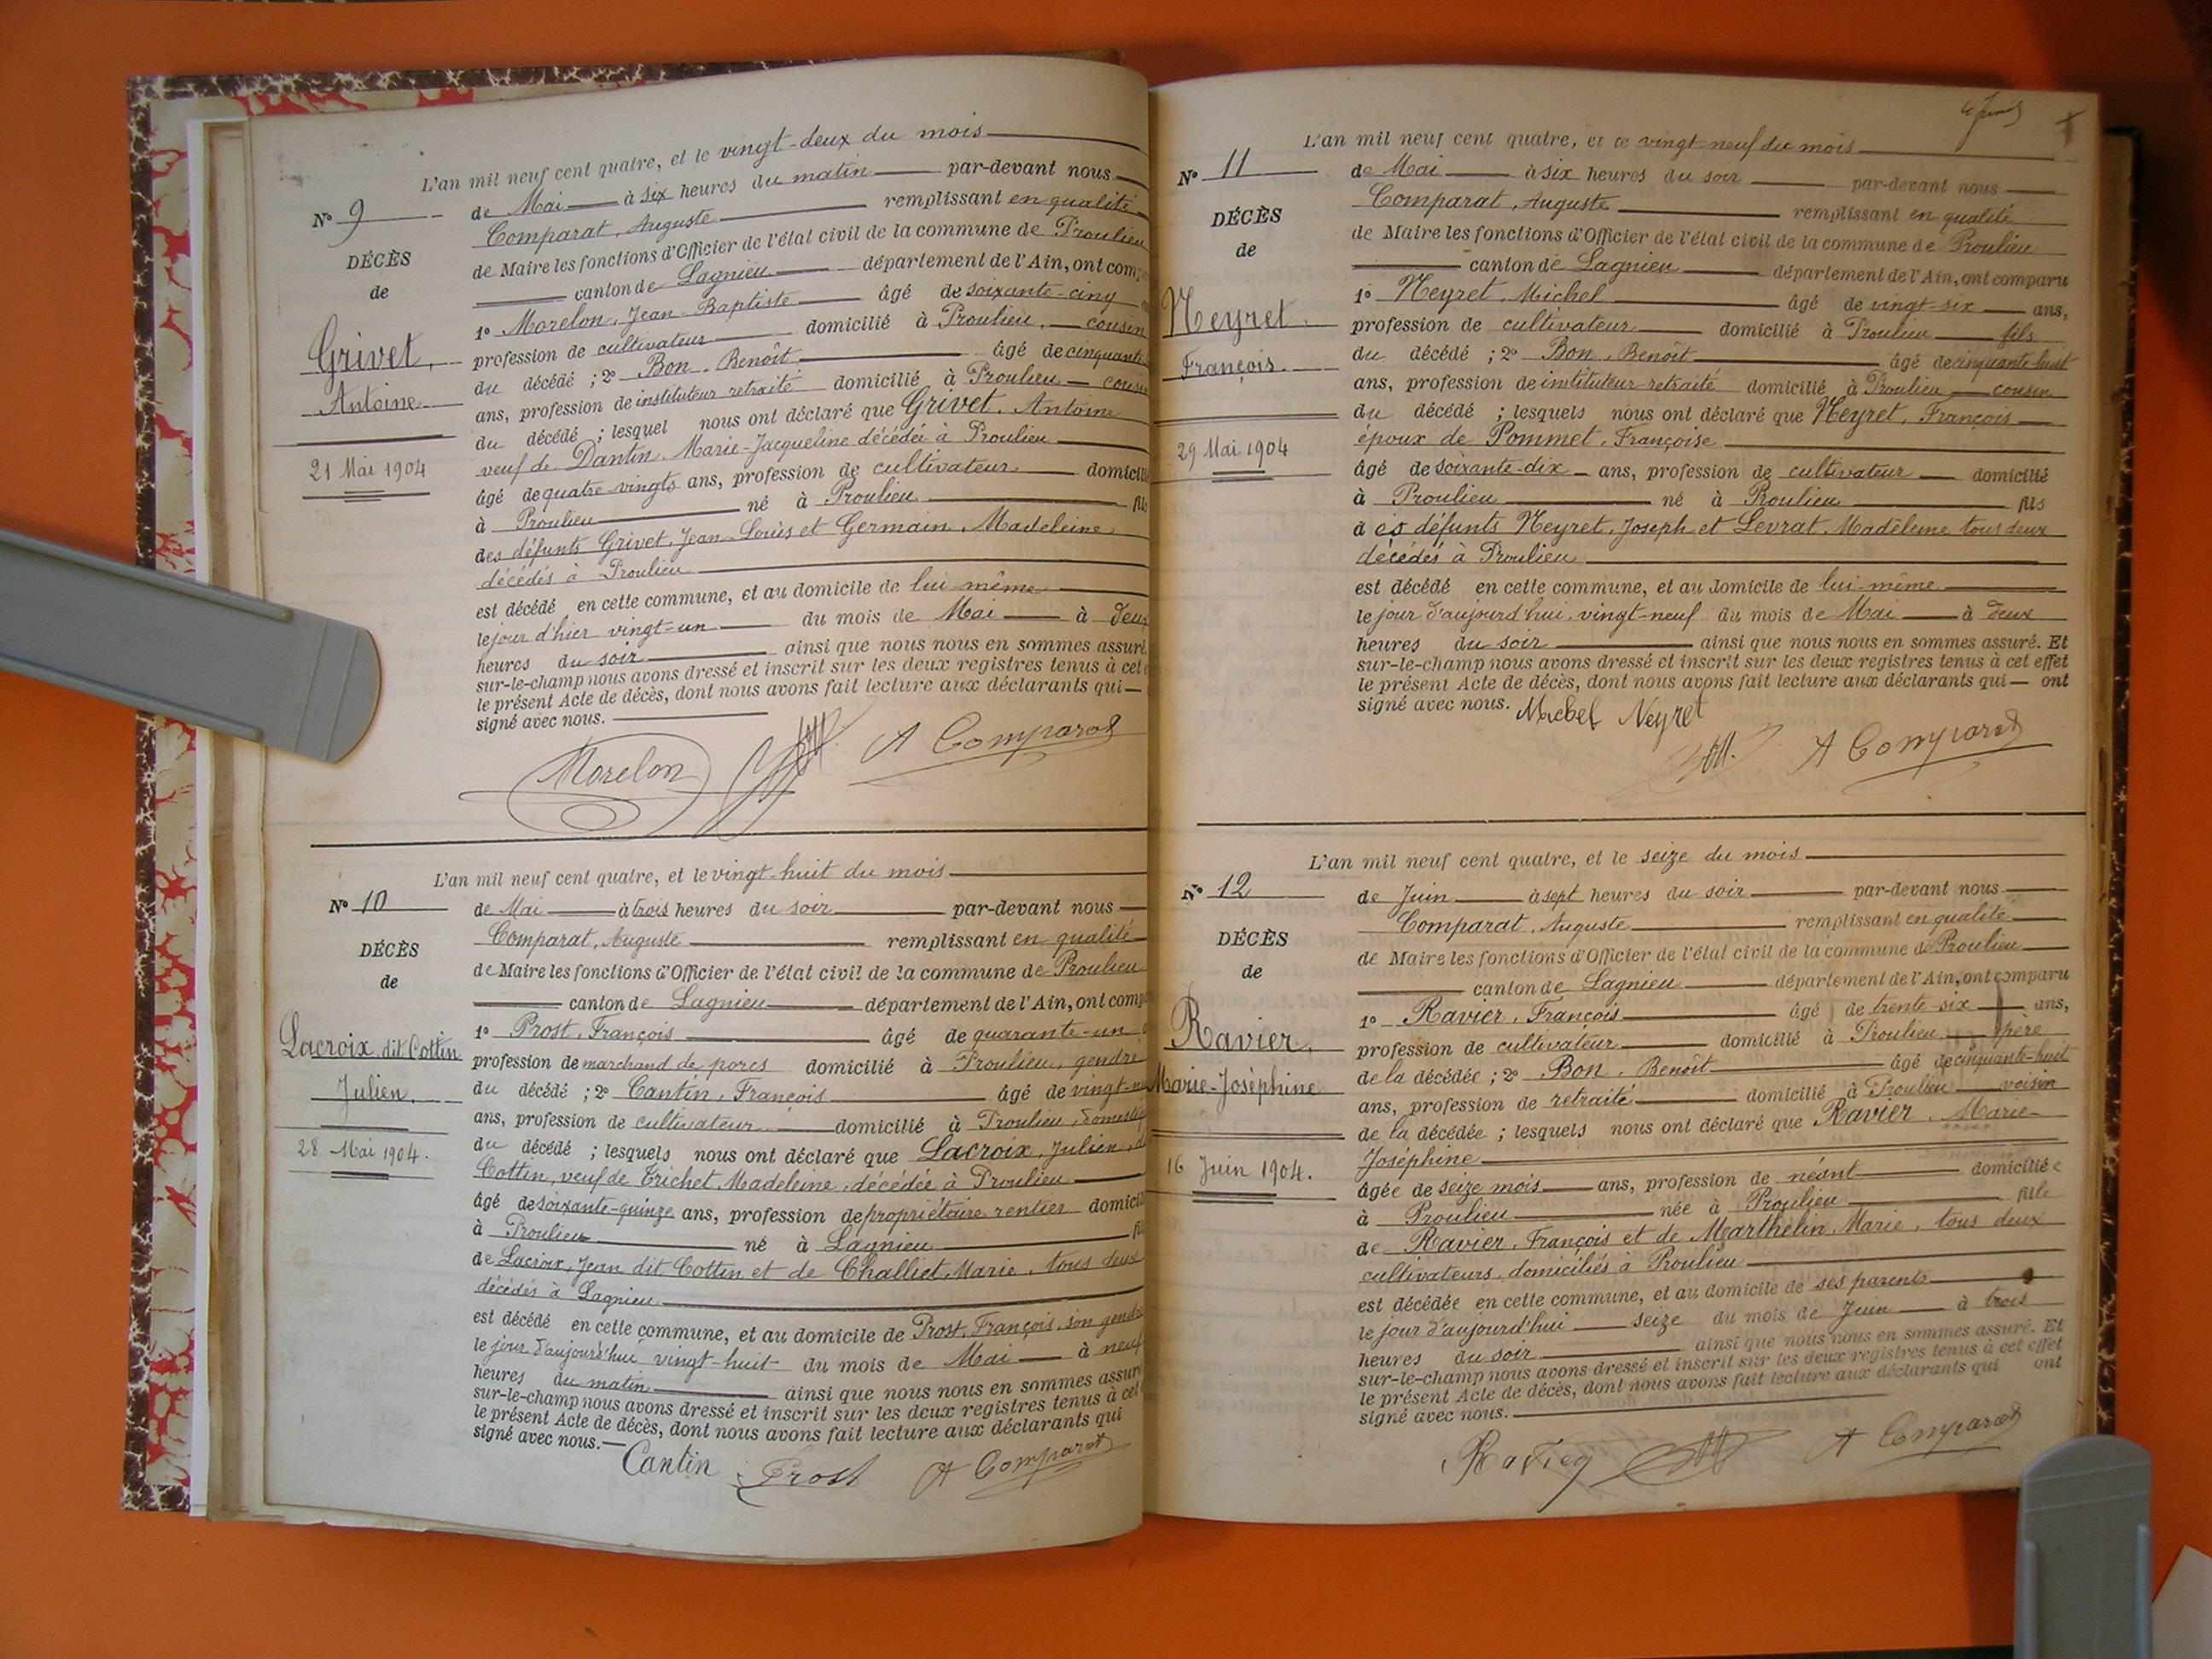 L'an mil neuf cent quatre, et le vingt-deux du mois
N° 9
de Mai à six heures du matin par-devant nous
Comparat, Auguste remplissant en qualité
DÉCÈS
de Maire les fonctions d'Officier de l'état civil de la commune de Proulieu
de
canton de Lagnieu département de l'Ain, ont com
1° Morelon, Jean-Baptiste âgé de soixante-cinq
Grivet,
profession de cultivateur domicilié à Proulieu, cousin
du décédé ; 2° Bon, Benoît âgé de cinquante
Antoine
ans, profession de instituteur retraité domicilié à Proulieu cousin
du décédé ; lesquel nous ont déclaré que Grivet, Antoine
21 Mai 1904
veuf de Dantin, Marie-Jacqueline décédée à Proulieu
âgé de quatre-vingts ans, profession de cultivateur domicilié
à Proulieu né à Proulieu fils
des défunts Grivet, Jean-Louis et Germain, Madeleine
décédés à Proulieu
est décédé en cette commune, et au domicile de lui-même
le jour d'hier vingt-un du mois de Mai à deux
heures du soir ainsi que nous nous en sommes assuré.
sur-le-champ nous avons dressé et inscrit sur les deux registres tenus à cet e
le présent Acte de décès, dont nous avons fait lecture aux déclarants qui
signé avec nous.
Morelon A Comparat
L'an mil neuf cent quatre, et le vingt-huit du mois
N° 10
de Mai à trois heures du soir par-devant nous
Comparat, Auguste remplissant en qualité
DÉCÈS
de Maire les fonctions d'Officier de l'état civil de la commune de Proulieu
de
canton de Lagnieu département de l'Ain, ont comp
1° Prost, François âgé de quarante-un
Lacroix, dit Cottin
profession de marchand de porcs domicilié à Proulieu, gendre
Julien,
du décédé ; 2° Cantin, François âgé de vingt-
ans, profession de cultivateur domicilié à Proulieu, domestiq
28 Mai 1904.
du décédé ; lesquels nous ont déclaré que Lacroix, Julien, d
Cottin, veuf de Trichet, Madeleine, décédée à Proulieu
âgé de soixante-quinze ans, profession de propriétaire rentier domicil
à Proulieu né à Lagnieu fi
de Lacroix, Jean dit Cottin et de Challiet, Marie, tous deux
décédés à Lagnieu
est décédé en cette commune, et au domicile de Prost, François, son gendre
le jour d'aujourd'hui vingt-huit du mois de Mai à neuf
heures du matin ainsi que nous nous en sommes assuré
sur-le-champ nous avons dressé et inscrit sur les deux registres tenus à cet
le présent Acte de décès, dont nous avons fait lecture aux déclarants qui
signé avec nous.
Cantin Prost A Comparat
L'an mil neuf cent quatre, et le vingt-neuf du mois
N° 11
de Mai à six heures du soir par-devant nous
Comparat, Auguste remplissant en qualité
DÉCÈS
de Maire les fonctions d'Officier de l'état civil de la commune de Proulieu
de
canton de Lagnieu département de l'Ain, ont comparu
1° Neyret, Michel âgé de vingt-six ans,
Neyret
profession de cultivateur domicilié à Proulieu fils
François.
du décédé ; 2° Bon, Benoît âgé de cinquante-huit
ans, profession de instituteur retraité domicilié à Proulieu cousin
du décédé ; lesquels nous ont déclaré que Neyret, François
29 Mai 1904
époux de Pommet, Françoise
âgé de soixante-dix ans, profession de cultivateur domicilié
à Proulieu né à Proulieu fils
des défunts Neyret, Joseph et Levrat, Madeleine tous deux
décédés à Proulieu
est décédé en cette commune, et au domicile de lui-même
le jour d'aujourd'hui, vingt-neuf du mois de Mai à deux
heures du soir ainsi que nous nous en sommes assuré. Et
sur-le-champ nous avons dressé et inscrit sur les deux registres tenus à cet effet
le présent Acte de décès, dont nous avons fait lecture aux déclarants qui ont
signé avec nous. Michel Neyret
A Comparat
L'an mil neuf cent quatre, et le seize du mois
N° 12
de Juin à sept heures du soir par-devant nous
Comparat, Auguste remplissant en qualité
DÉCÈS
de Maire les fonctions d'Officier de l'état civil de la commune de Proulieu
de
canton de Lagnieu département de l'Ain, ont comparu
1° Ravier, François âgé de trente-six ans,
Ravier,
profession de cultivateur domicilié à Proulieu père
Marie-Joséphine
de la décédée ; 2° Bon, Benoît âgé de cinquante-huit
ans, profession de retraité domicilié à Proulieu voisin
de la décédée ; lesquels nous ont déclaré que Ravier, Marie-
16 Juin 1904.
Joséphine
âgée de seize mois ans, profession de néant domiciliée
à Proulieu née à Proulieu fille
de Ravier, François et de Marthelin, Marie, tous deux
cultivateurs, domiciliés à Proulieu
est décédée en cette commune, et au domicile de ses parents
le jour d'aujourd'hui seize du mois de Juin à trois
heures du soir ainsi que nous nous en sommes assuré. Et
sur-le-champ nous avons dressé et inscrit sur les deux registres tenus à cet effet
le présent Acte de décès, dont nous avons fait lecture aux déclarants qui ont
signé avec nous.
Ravier A Comparat